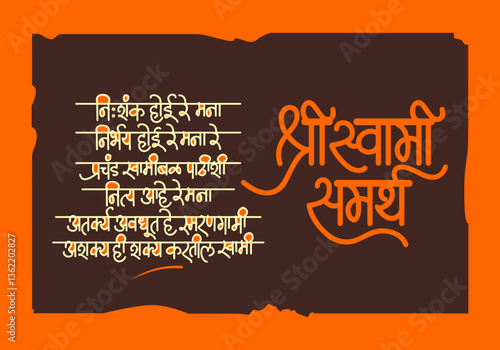 निःशंक होई रे मना
निर्भय होई रे मना रे
प्रचंड स्वामीबळ पाठीशी
नित्य आहे रे मना
अतर्क्य अवधूत हे स्मरणगामी
अशक्य ही शक्य करतील स्वामी
श्री स्वामी
समर्थ
Adobe Stock | #1362202827